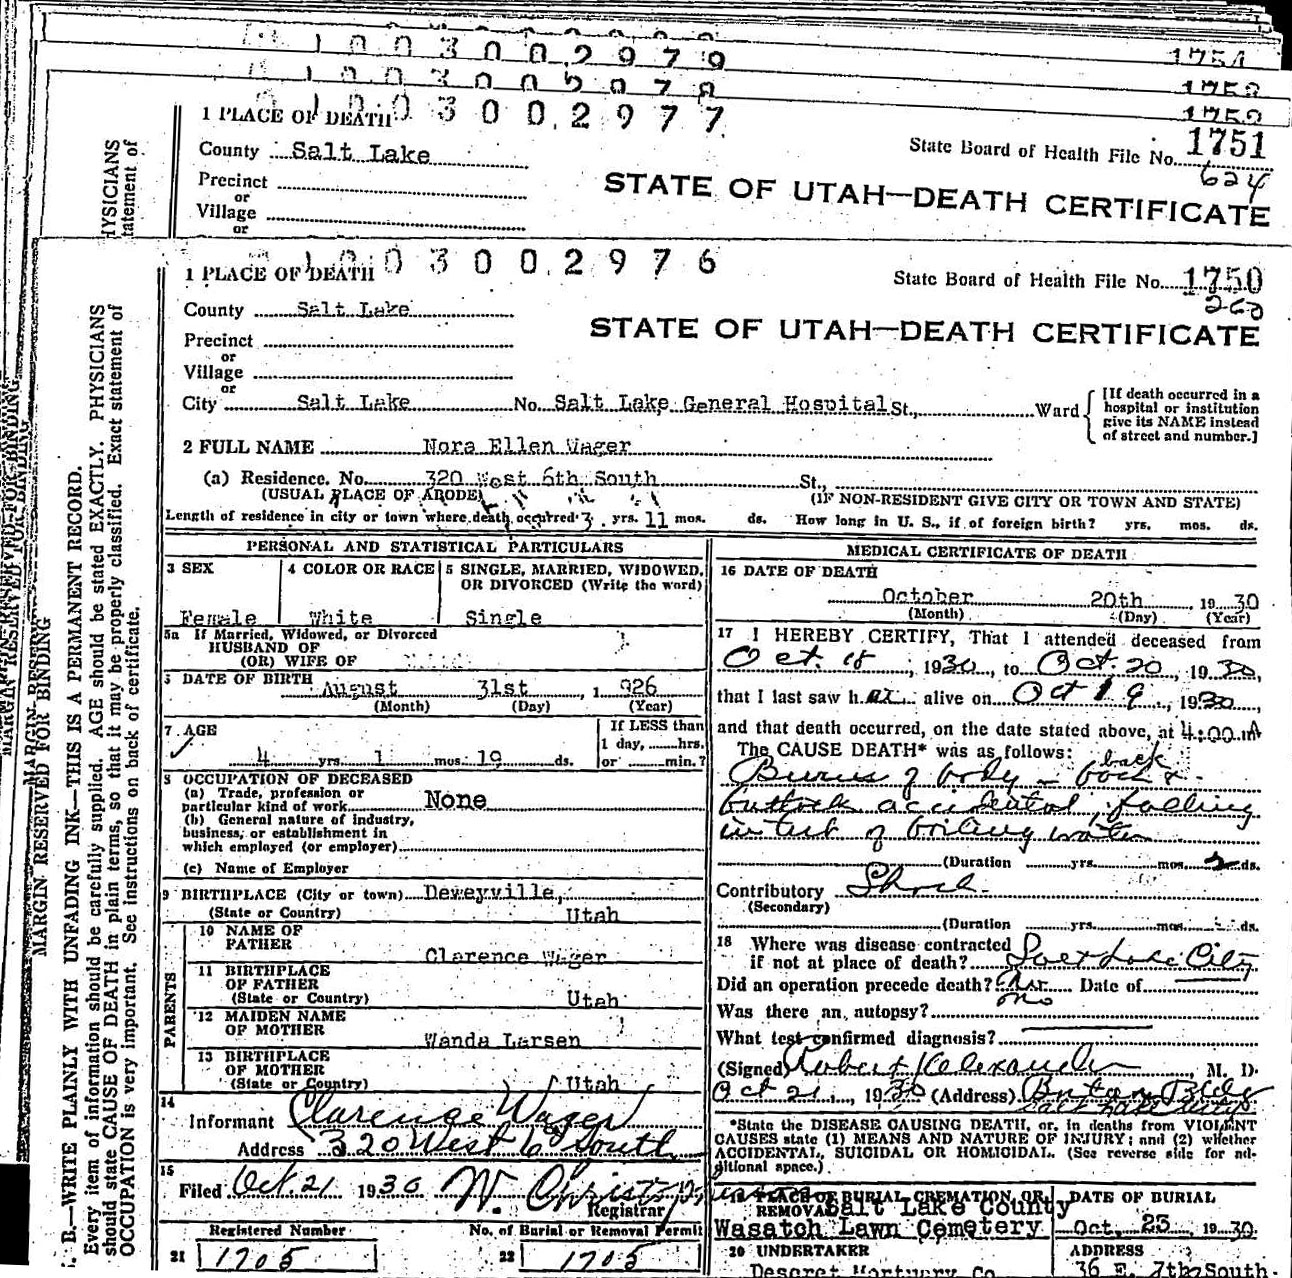 1003002979
1754
1003002978
1753
1752
1003002977
1 PLACE OF DEATH
State Board of Health File No. 1751
County Salt Lake
624
Precinct
or
STATE OF UTAH—DEATH CERTIFICATE
Village
or
1003002976
1 PLACE OF DEATH
State Board of Health File No. 1750
260
County Salt Lake
STATE OF UTAH—DEATH CERTIFICATE
Precinct
or
Village
or
City Salt Lake No. Salt Lake General Hospital St., Ward [If death occurred in a hospital or institution give its NAME instead of street and number.]
2 FULL NAME Nora Ellen Wager
(a) Residence. No. 320 West 6th South St.,
(USUAL PLACE OF ABODE) (IF NON-RESIDENT GIVE CITY OR TOWN AND STATE)
Length of residence in city or town where death occurred 3 yrs. 11 mos. ds. How long in U. S., if of foreign birth? yrs. mos. ds.
PERSONAL AND STATISTICAL PARTICULARS
3 SEX
Female
4 COLOR OR RACE
White
5 SINGLE, MARRIED, WIDOWED, OR DIVORCED (Write the word)
Single
5a If Married, Widowed, or Divorced
HUSBAND OF
(OR) WIFE OF
6 DATE OF BIRTH August 31st, 1926
(Month) (Day) (Year)
7 AGE
4 yrs. 1 mos. 19 ds.
If LESS than
1 day, hrs.
or min.?
8 OCCUPATION OF DECEASED
(a) Trade, profession or
particular kind of work None
(b) General nature of industry,
business, or establishment in
which employed (or employer)
(c) Name of Employer
9 BIRTHPLACE (City or town) Deweyville,
(State or Country) Utah
PARENTS
10 NAME OF
FATHER Clarence Wager
11 BIRTHPLACE
OF FATHER
(State or Country) Utah
12 MAIDEN NAME
OF MOTHER Wanda Larsen
13 BIRTHPLACE
OF MOTHER
(State or Country) Utah
14
Informant Clarence Wager
Address 320 West 6 South
15
Filed Oct. 21 1930 W. Christopherson
Registrar
Registered Number
21 1705
No. of Burial or Removal Permit
22 1705
MEDICAL CERTIFICATE OF DEATH
16 DATE OF DEATH
October 20th, 1930
(Month) (Day) (Year)
17 I HEREBY CERTIFY, That I attended deceased from
Oct. 18, 1930, to Oct. 20, 1930,
that I last saw her alive on Oct 19, 1930,
and that death occurred, on the date stated above, at 4:00 m A
The CAUSE DEATH* was as follows:
back
Burns of body - &
buttock accidental, falling
in tub of boiling water
(Duration yrs. mos. 2 ds.
Contributory Shock
(Secondary)
(Duration yrs. mos. ds.
18 Where was disease contracted
if not at place of death? Salt Lake City
Did an operation precede death? Date of
no
Was there an autopsy?
What test confirmed diagnosis?
(Signed) Robert Alexander, M. D.
Oct 21, 1930 (Address) Bldg
Salt Lake City
*State the DISEASE CAUSING DEATH, or, in deaths from VIOLENT
CAUSES state (1) MEANS AND NATURE OF INJURY; and (2) whether
ACCIDENTAL, SUICIDAL OR HOMICIDAL. (See reverse side for additional space.)
19 PLACE OF BURIAL CREMATION, OR
REMOVAL Salt Lake County
Wasatch Lawn Cemetery
DATE OF BURIAL
Oct. 23, 1930
20 UNDERTAKER
Deseret Mortuary Co
ADDRESS
36 E. 7th South.
MARGIN RESERVED FOR BINDING
B.—WRITE PLAINLY WITH UNFADING INK—THIS IS A PERMANENT RECORD.
Every item of information should be carefully supplied. AGE should be stated EXACTLY. PHYSICIANS
should state CAUSE OF DEATH in plain terms, so that it may be properly classified. Exact statement of
OCCUPATION is very important. See instructions on back of certificate.